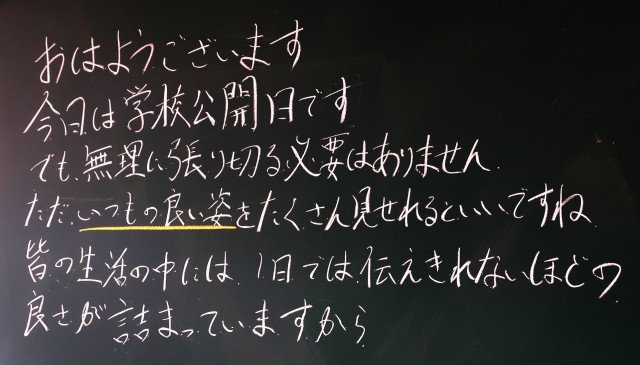 おはようございます
今日は学校公開日です
でも、無理に張り切る必要はありません.
ただ、いつもの良い姿をたくさん見せれるといいですね
皆の生活の中には、1日では伝えきれないほどの
良さが詰まっていますから